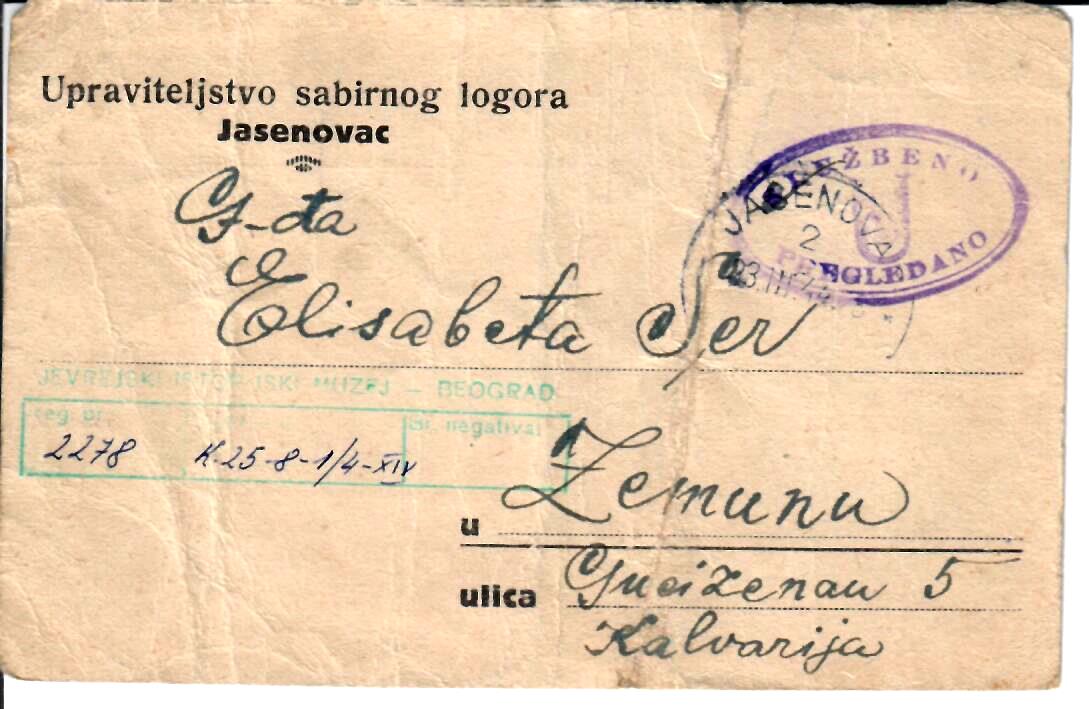 Upraviteljstvo sabirnog logora
Jasenovac
G-đa
Elisabeta Ser
SLUŽBENO
U
PREGLEDANO
JASENOVA
2
23.III.44.
JEVREJSKI ISTORIJSKI MUZEJ – BEOGRAD
reg. br.
Br. negativa
2278
K.25-8-1/4-XIV
u Zemunu
ulica 5
Kalvarija